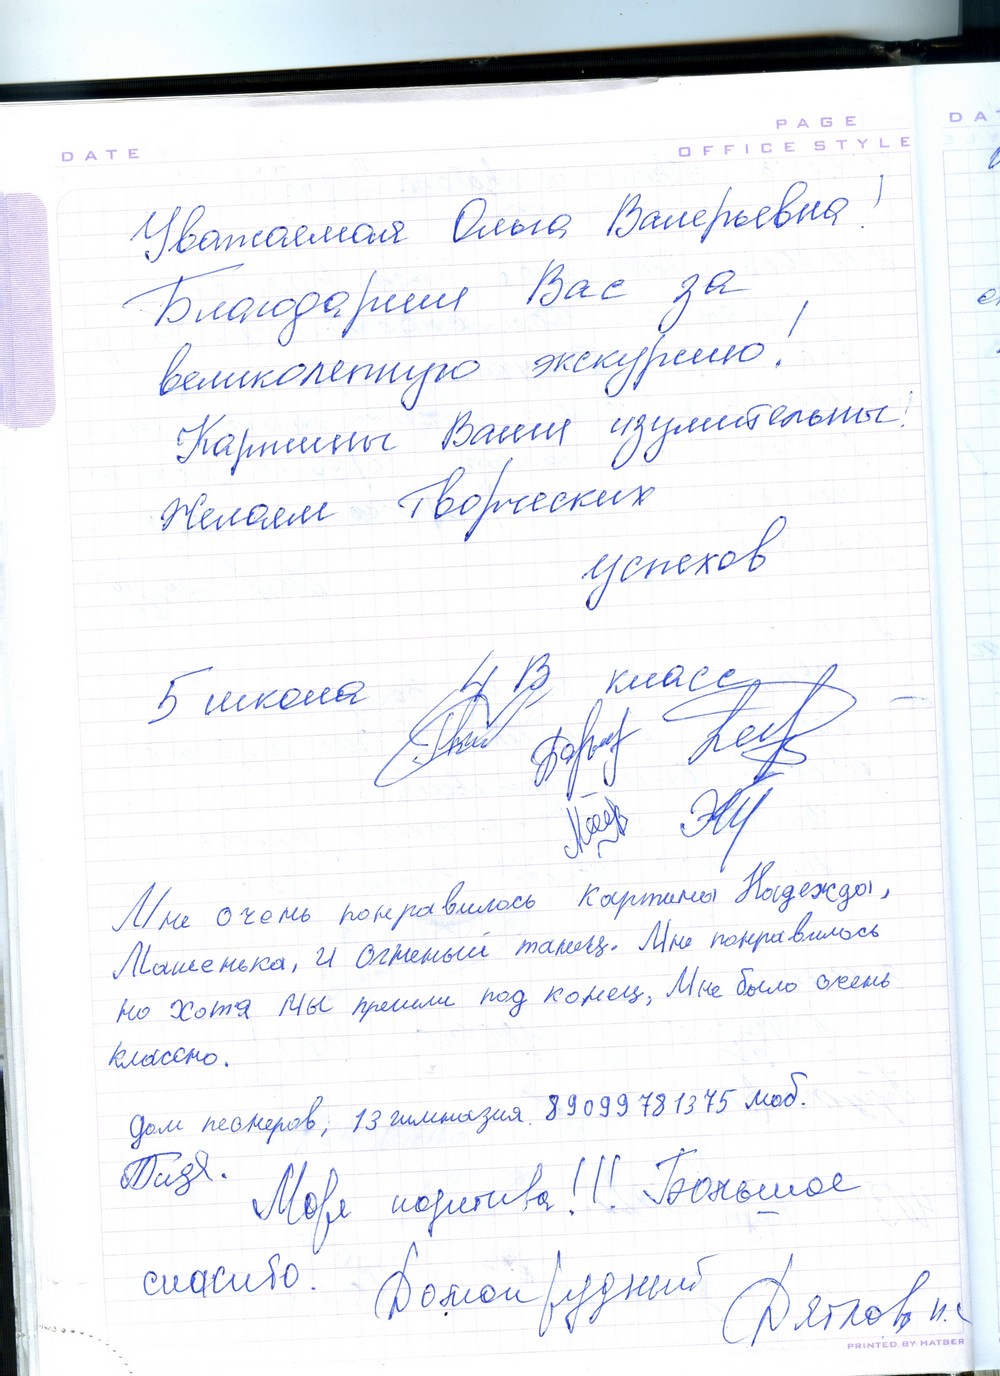 PAGE
DATE
OFFICE STYLE
DAT
Уважаемая Ольга Валерьевна!
Благодарим Вас за
великолепную экскурсию!
Картины Ваши изумительны!
Желаем Творческих
успехов
5 школа 4 В класс
Мне очень понравилось картины Надежды,
Машенька, и Огненый танец. Мне понравилось
но хотя мы пришли под конец, Мне было очень
классно.
Дом пеонеров, 13 гимназия. 89099781375 моб.
Море позитива!!! Большое
спасибо.
Дятлов
PRINTED BY HATBER